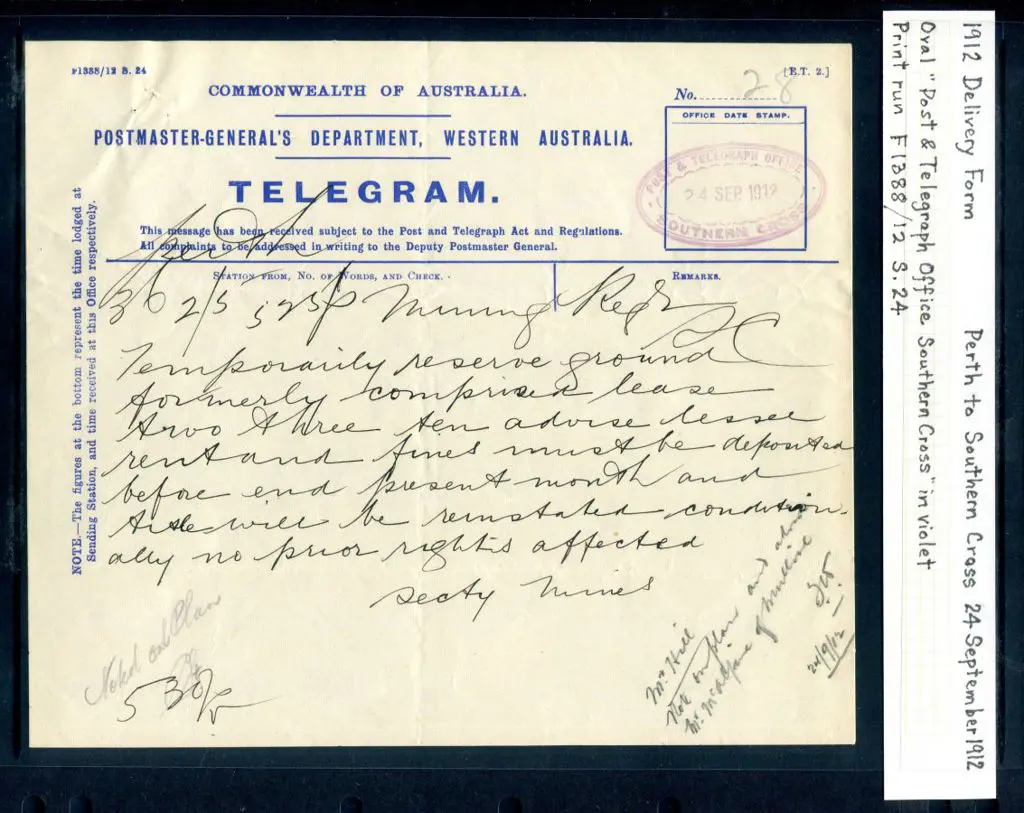 F1388/12 S. 24
[E.T. 2.]
COMMONWEALTH OF AUSTRALIA.
No. 28
POSTMASTER-GENERAL'S DEPARTMENT, WESTERN AUSTRALIA.
OFFICE DATE STAMP.
POST & TELEGRAPH OFFICE
24 SEP 1912
SOUTHERN CROSS
TELEGRAM.
This message has been received subject to the Post and Telegraph Act and Regulations.
All complaints to be addressed in writing to the Deputy Postmaster General.
Perth
STATION FROM, NO. OF WORDS, AND CHECK.
REMARKS.
36 2/5 525p Mining Regr
SC
Temporarily reserve ground
formerly comprised lease
two three ten advise lessee
rent and fines must be deposited
before end present month and
title will be reinstated condition-
ally no prior rights affected
secty Mines
NOTE.—The figures at the bottom represent the time lodged at
Sending Station, and time received at this Office respectively.
Noted on Plan
530p
Mr Hill
Note on plan and
Mr. of
24/9/12
1912 Delivery Form Perth to Southern Cross 24 September 1912
Oval "Post & Telegraph Office Southern Cross" in violet
Print run F1388/12 S.24